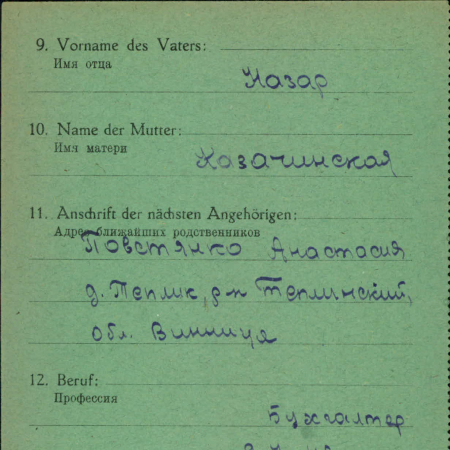 9. Vorname des Vaters:
Имя отца
Назар
10. Name der Mutter:
Имя матери
Казачинская
11. Anschrift der nächsten Angehörigen:
Адрес ближайших родственников
Повстянко Анастасия
д. Теплик, р-н Теплинский,
обл. Винница
12. Beruf:
Профессия
Бухгалтер